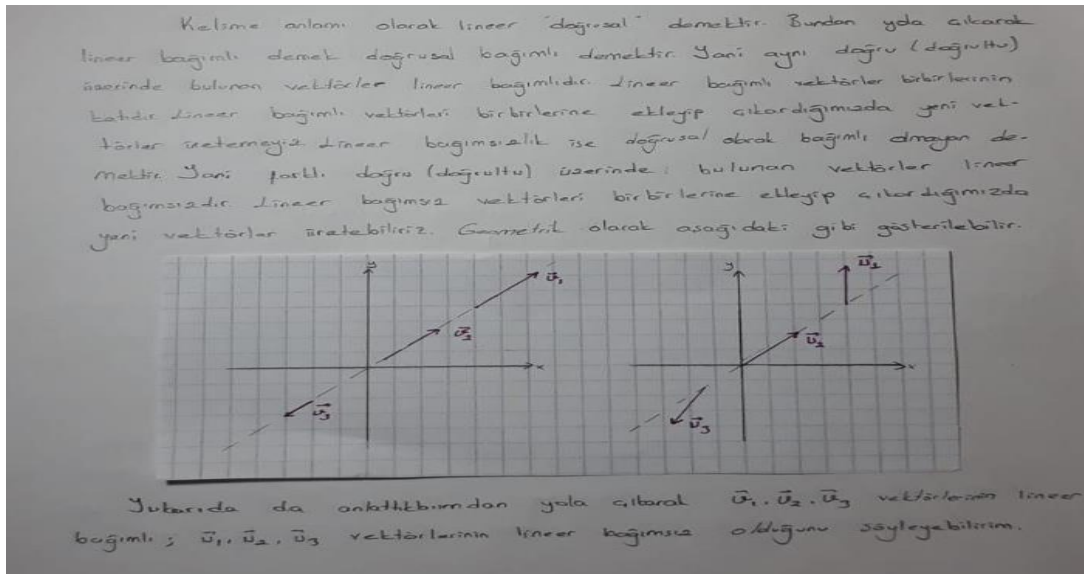 Kelime anlamı olarak lineer "doğrusal" demektir. Bundan yola çıkarak
lineer bağımlı demek doğrusal bağımlı demektir. Yani aynı doğru (doğrultu)
üzerinde bulunan vektörler lineer bağımlıdır. Lineer bağımlı vektörler birbirlerinin
katıdır. Lineer bağımlı vektörleri birbirlerine ekleyip çıkardığımızda yeni vek-
törler üretemeyiz. Lineer bağımsızlık ise doğrusal olarak bağımlı olmayan de-
mektir. Yani farklı doğru (doğrultu) üzerinde bulunan vektörler lineer
bağımsızdır. Lineer bağımsız vektörleri birbirlerine ekleyip çıkardığımızda
yeni vektörler üretebiliriz. Geometrik olarak aşağıdaki gibi gösterilebilir.
y
v⃗₁
v⃗₂
x
v⃗₃
y
u⃗₂
u⃗₁
x
u⃗₃
Yukarıda da anlattıklarımdan yola çıkarak v⃗₁, v⃗₂, v⃗₃ vektörlerinin lineer
bağımlı; u⃗₁, u⃗₂, u⃗₃ vektörlerinin lineer bağımsız olduğunu söyleyebilirim.